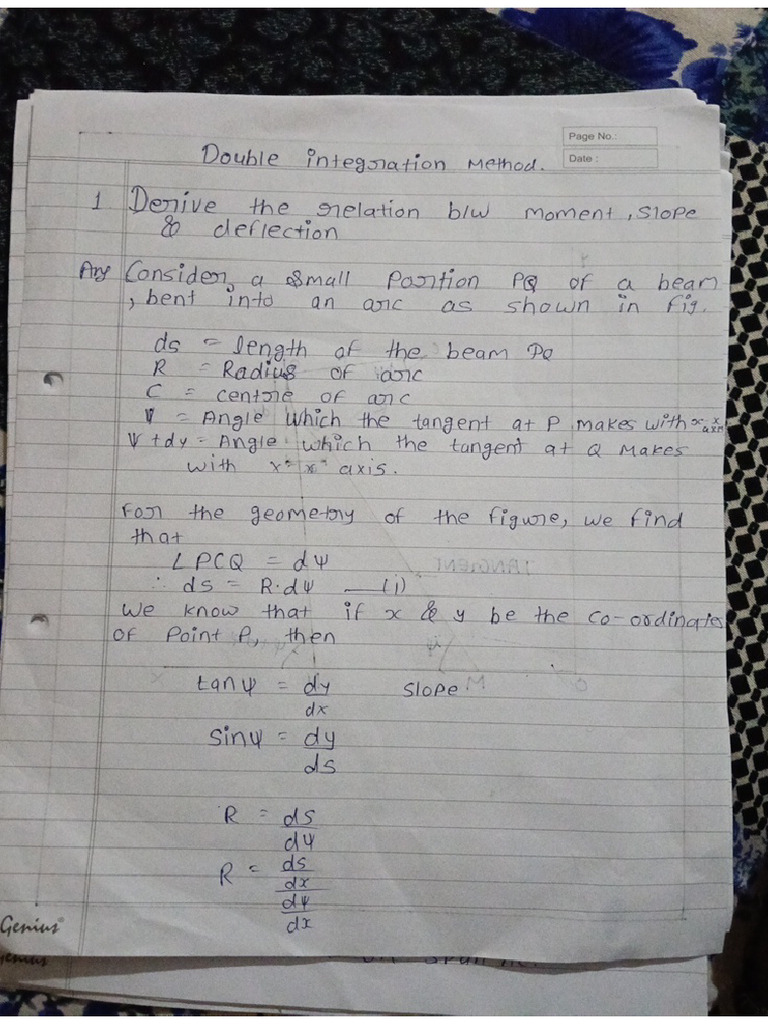 Page No.:
Date :
Double integration Method.
1 Derive the relation b/w moment, slope
& deflection
Ans Consider, a small Portion PQ of a beam
, bent into an arc as shown in fig.
ds = length of the beam PQ
R = Radius of arc
C = centre of arc
Ψ = Angle which the tangent at P makes with x-x axis
Ψ + dy = Angle which the tangent at Q Makes
with x - x axis.
For the geometry of the figure, we find
that
∠PCQ = dΨ
∴ ds = R·dΨ —(i)
We know that if x & y be the co-ordinates
of Point P, then
tanΨ = dy/dx slope
sinΨ = dy/ds
R = ds/dΨ
R = (ds/dx)/(dΨ/dx)
Genius
Genius
TANGENT
M